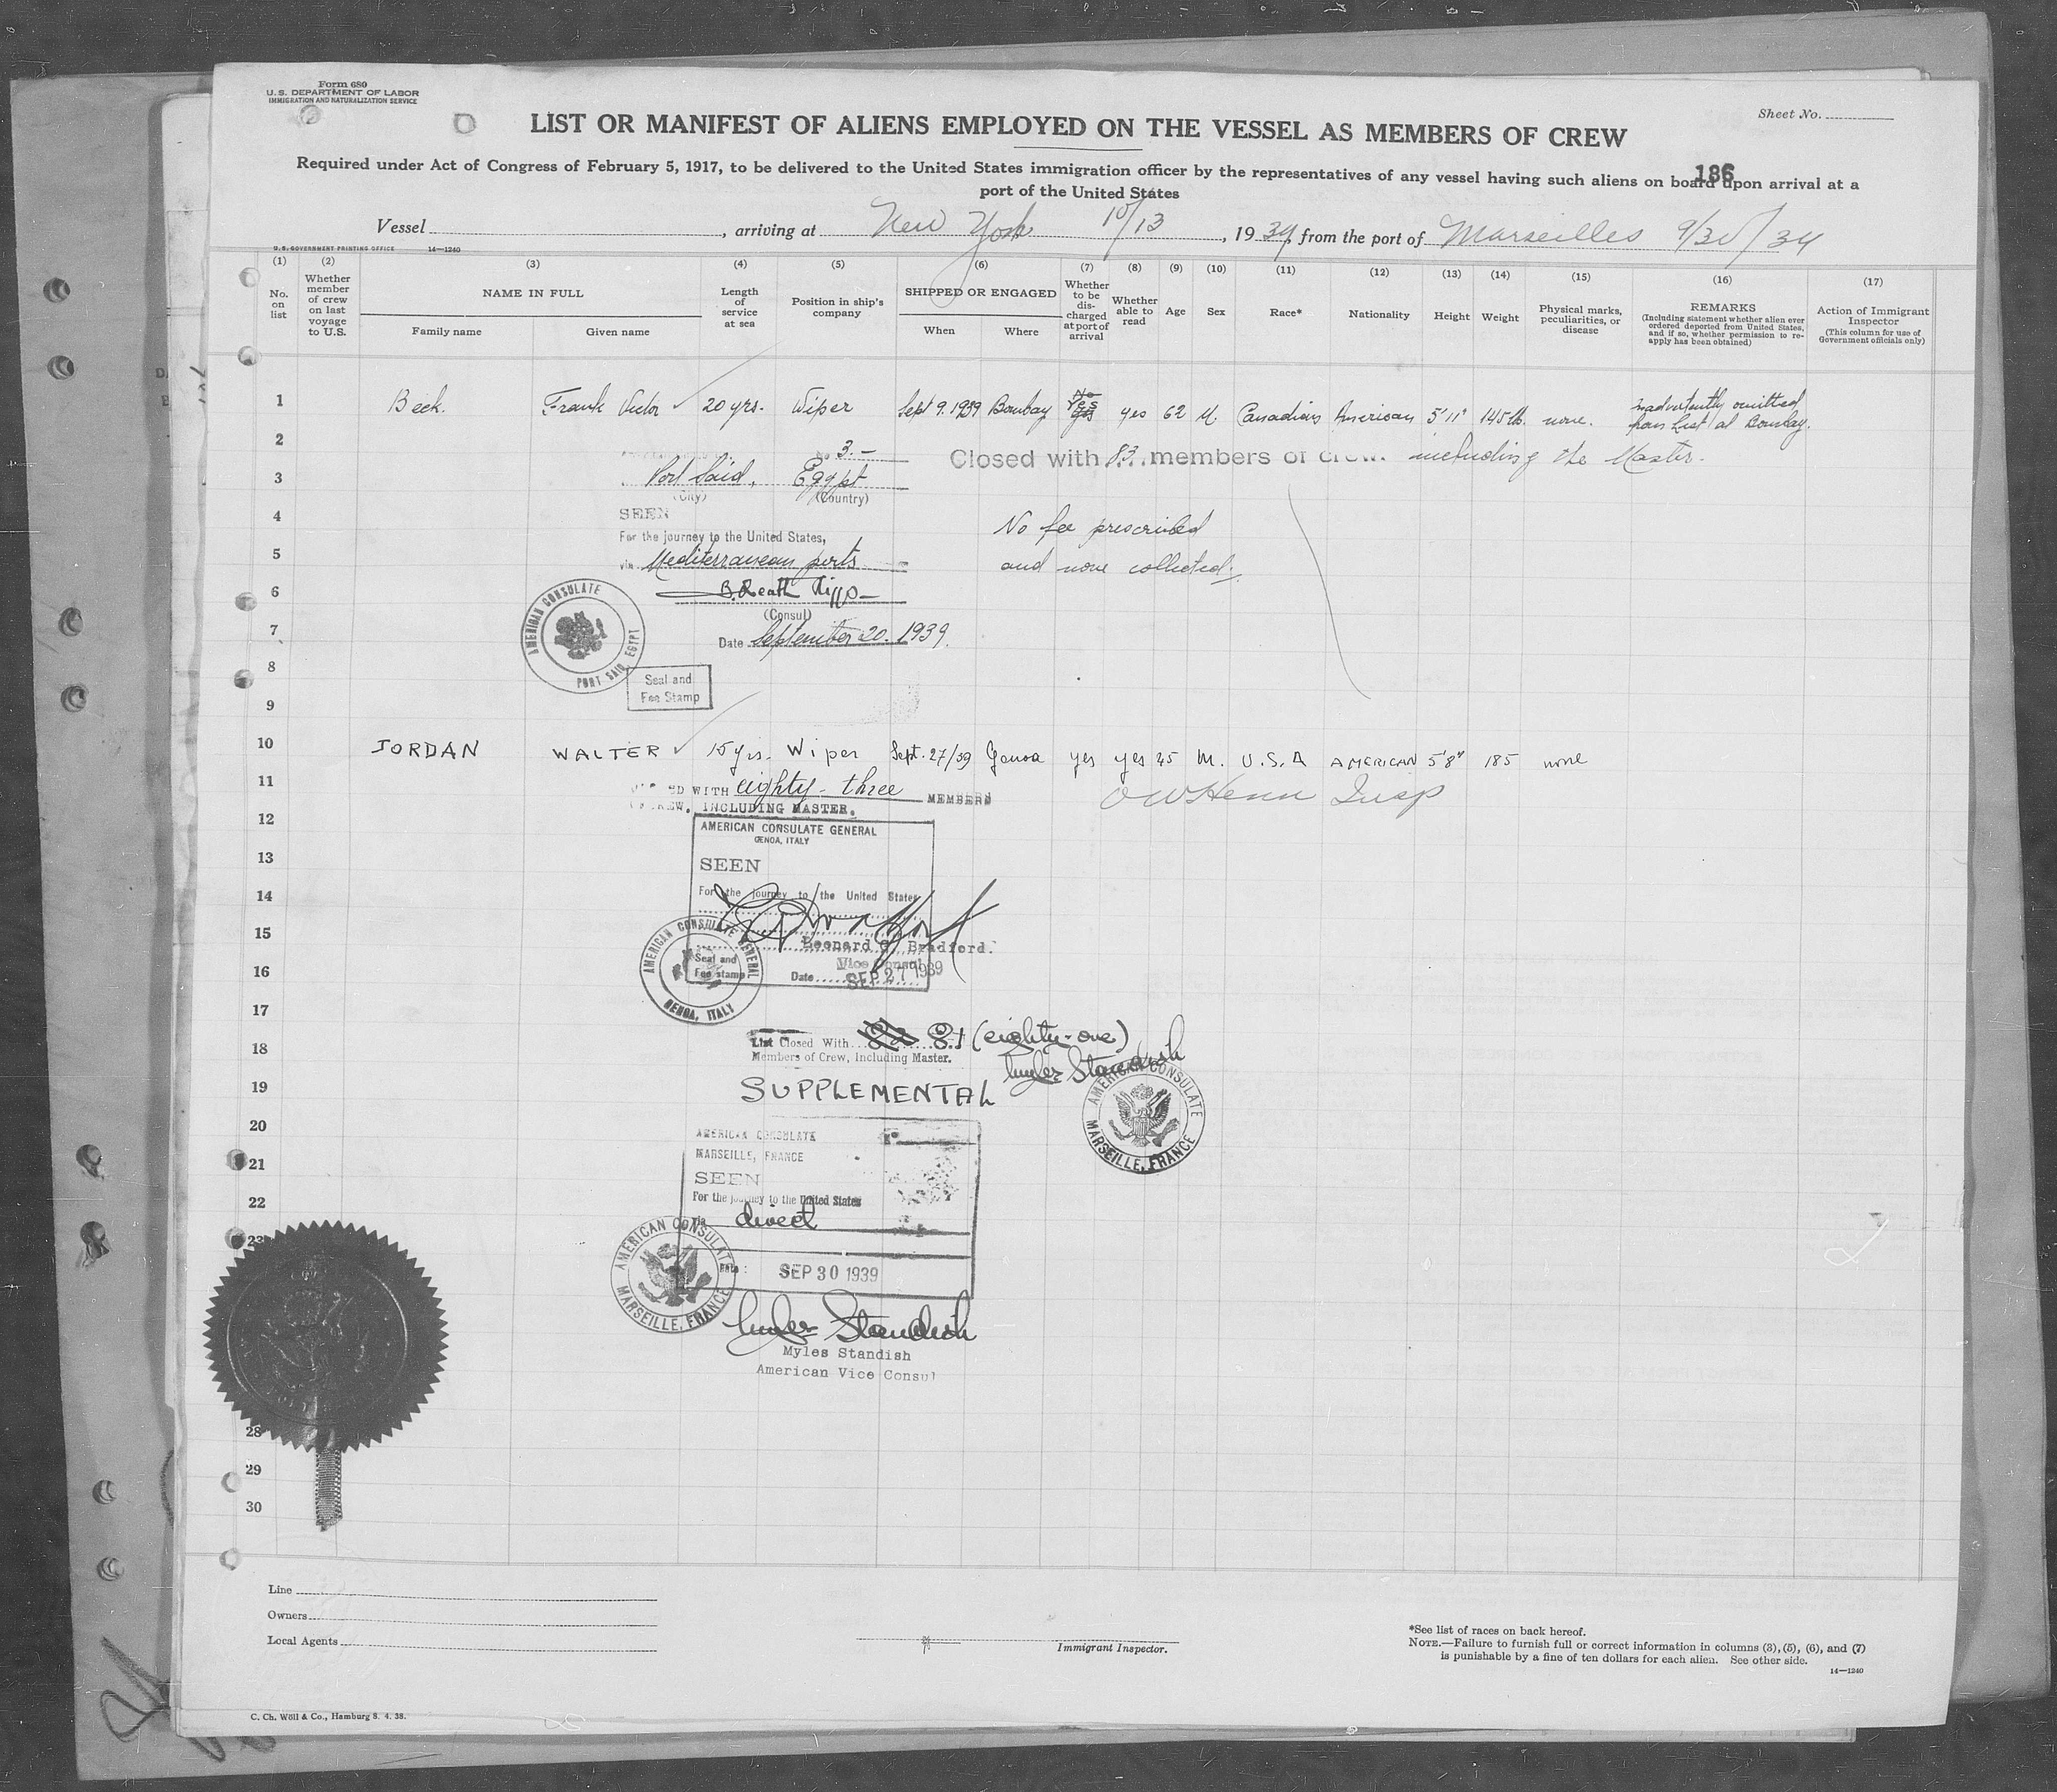 Form 680
U.S. DEPARTMENT OF LABOR
IMMIGRATION AND NATURALIZATION SERVICE
Sheet No.
LIST OR MANIFEST OF ALIENS EMPLOYED ON THE VESSEL AS MEMBERS OF CREW
Required under Act of Congress of February 5, 1917, to be delivered to the United States immigration officer by the representatives of any vessel having such aliens on board upon arrival at a
186
port of the United States
Vessel , arriving at New York 10/13 , 1939, from the port of Marseilles 9/30/39
U. S. GOVERNMENT PRINTING OFFICE 14—1240
(1) No. on list
(2) Whether member of crew on last voyage to U.S.
(3) NAME IN FULL Family name Given name
(4) Length of service at sea
(5) Position in ship's company
(6) SHIPPED OR ENGAGED When Where
(7) Whether to be discharged at port of arrival
(8) Whether able to read
(9) Age
(10) Sex
(11) Race*
(12) Nationality
(13) Height
(14) Weight
(15) Physical marks, peculiarities, or disease
(16) REMARKS (Including statement whether alien ever ordered deported from United States, and if so, whether permission to reapply has been obtained)
(17) Action of Immigrant Inspector (This column for use of Government officials only)
1 Beck. Frank Victor 20 yrs. Wiper Sept 9. 1939 Bombay No Yes yes 62 M. Canadian American 5'11" 145 lb. none. Inadvertently omitted from List at Bombay.
2
No 3.—
Closed with 83 members of crew. including the Master.
3
Port Said, Egypt
(City) (Country)
4
SEEN
No fee prescribed
For the journey to the United States,
5
via Mediterranean ports
and none collected.
6
(Consul)
7
Date September 20. 1939.
AMERICAN CONSULATE
PORT SAID, EGYPT
8
Seal and
Fee Stamp
9
10 JORDAN WALTER 15 yrs. Wiper Sept. 27/39 Genoa yes yes 45 M. U.S.A AMERICAN 5'8" 185 none
11
WITH eighty-three MEMBERS
CREW, INCLUDING MASTER.
12
AMERICAN CONSULATE GENERAL
GENOA, ITALY
13
SEEN
14
For the journey to the United States
15
Leonard G. Bradford.
16
Vice Consul
Seal and
Fee stamp
Date SEP 27 1939
AMERICAN CONSULATE GENERAL
GENOA, ITALY
17
List Closed With 82 81 (eighty-one)
18
Members of Crew, Including Master.
Myles Standish
19
SUPPLEMENTAL
AMERICAN CONSULATE
MARSEILLE, FRANCE
20
AMERICAN CONSULATE
MARSEILLE, FRANCE
21
SEEN
22
For the journey to the United States
direct
23
AMERICAN CONSULATE
MARSEILLE, FRANCE
Date: SEP 30 1939
Myles Standish
Myles Standish
American Vice Consul
28
29
30
Line
Owners
Local Agents
Immigrant Inspector.
*See list of races on back hereof.
NOTE.—Failure to furnish full or correct information in columns (3), (5), (6), and (7)
is punishable by a fine of ten dollars for each alien. See other side.
14—1240
C. Ch. Wöll & Co., Hamburg 8. 4. 38.